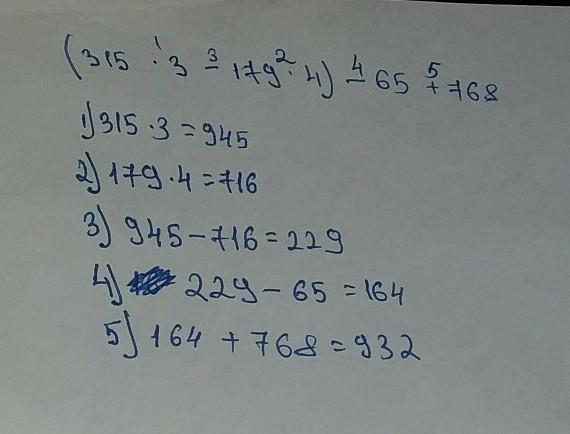 (315 ·¹ 3 -³ 179 ·² 4) -⁴ 65 +⁵ 768
1) 315 · 3 = 945
2) 179 · 4 = 716
3) 945 - 716 = 229
4) 229 - 65 = 164
5) 164 + 768 = 932